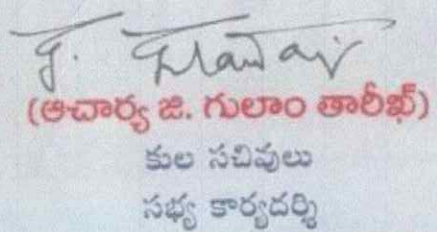 (ఆచార్య జి. గులాం తారీఖ్)
కుల సచివులు
సభ్య కార్యదర్శి